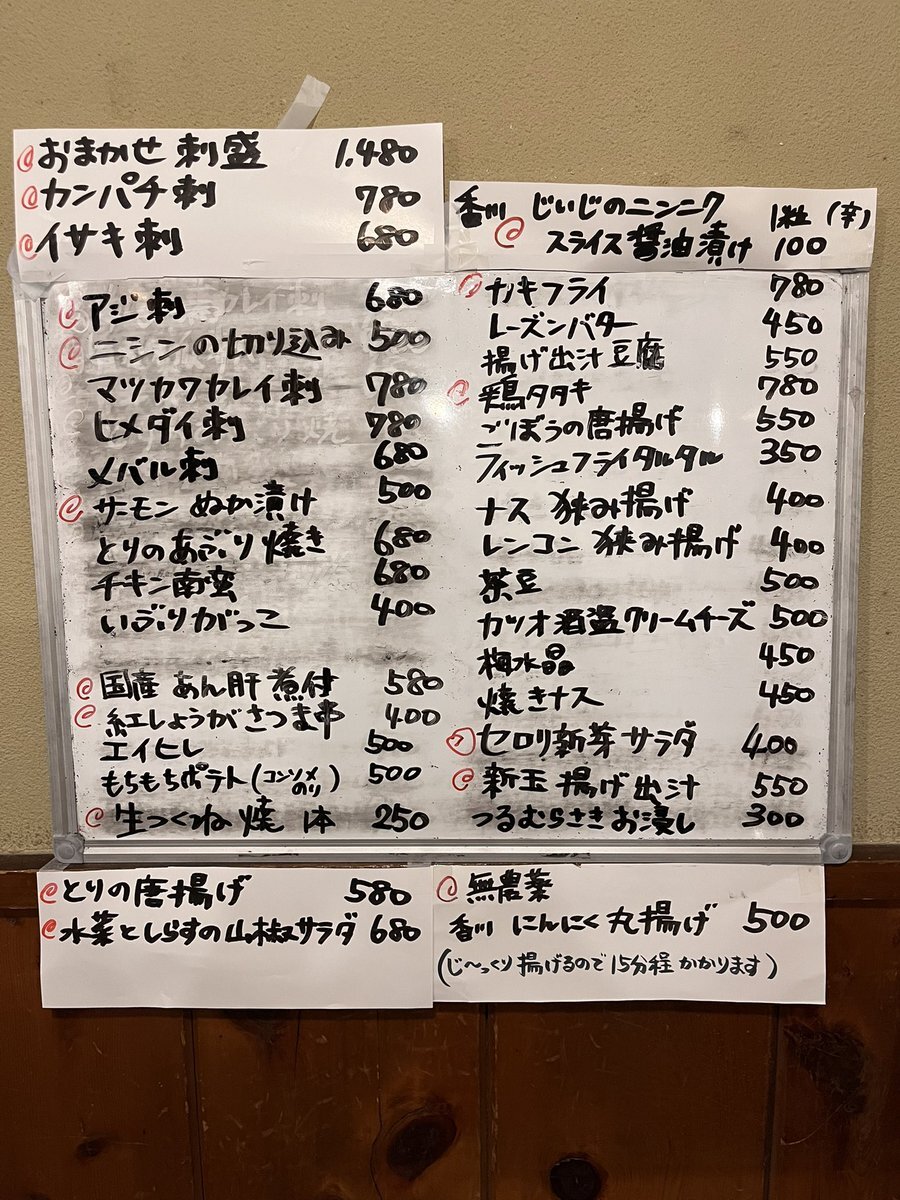 おまかせ 刺盛 1.480
カンパチ刺 780
イサキ刺 680
アジ刺 680
ニシンの切り込み 500
マツカワカレイ刺 780
ヒメダイ刺 780
メバル刺 680
サーモン ぬか漬け 500
とりのあぶり焼き 680
チキン南蛮 680
いぶりがっこ 400
国産 あん肝 煮付 580
紅しょうがさつま串 400
エイヒレ 500
もちもちポテト(コンソメ のり) 500
生つくね 焼 1本 250
とりの唐揚げ 580
水菜としらすの山椒サラダ 680
香川 じいじのニンニク 1粒 (辛)
スライス醤油漬け 100
カキフライ 780
レーズンバター 450
揚げ出汁豆腐 550
鶏タタキ 780
ごぼうの唐揚げ 550
フィッシュフライタルタル 350
ナス 狭み揚げ 400
レンコン 狭み揚げ 400
茶豆 500
カツオ酒盗クリームチーズ 500
梅水晶 450
焼きナス 450
セロリ新芽サラダ 400
新玉 揚げ出汁 550
つるむらさきお浸し 300
無農薬
香川 にんにく丸揚げ 500
(じ〜っくり揚げるので15分程かかります)